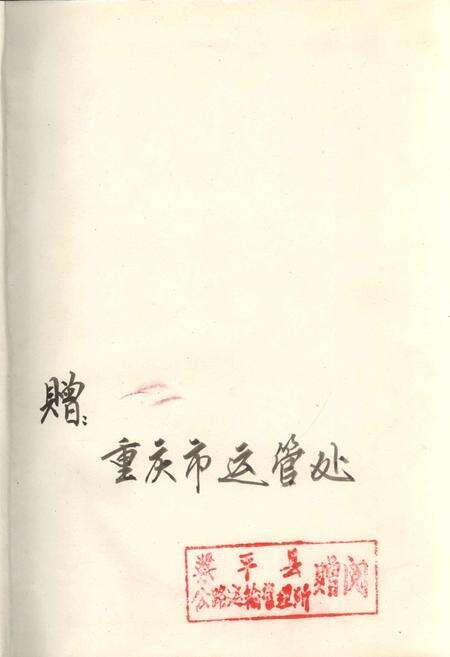 赠：
重庆市运管处
梁平县
公路运输管理所
赠阅